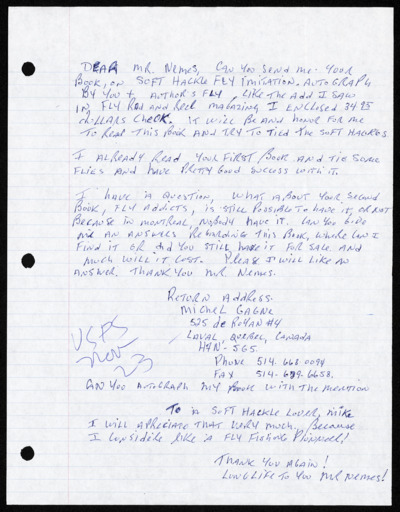 DEAR MR. NEMES, CAN YOU SEND ME YOUR
BOOK, ON SOFT HACKLE FLY IMITATION. AUTOGRAPH
BY YOU + AUTHOR'S FLY. LIKE THE ADD I SAW
IN FLY ROD AND REEL MAGAZINE, I ENCLOSED 34.95
DOLLARS CHECK. IT WILL BE AND HONOR FOR ME
TO READ THIS BOOK AND TRY TO TIED THE SOFT HACKLES.
I ALREADY READ YOUR FIRST BOOK AND TIE SOME
FLIES AND HAVE PRETTY GOOD SUCCESS WITH IT.
I HAVE A QUESTION, WHAT ABOUT YOUR SECOND
BOOK, FLY ADDICTS, IS STILL POSSIBLE TO HAVE IT, OR NOT
BECAUSE IN MONTREAL, NOBODY HAVE IT. CAN YOU GIVE
ME AN ANSWERS REGARDING THIS BOOK, WHERE CAN I
FIND IT OR DID YOU STILL HAVE IT FOR SALE AND
MUCH WILL IT COST. PLEASE I WILL LIKE AN
ANSWER. THANK YOU MR. NEMES.
RETURN ADDRESS.
MICHEL GAGNE
525 de ROYAN #4
LAVAL, QUEBEC, CANADA
H7N- 5G5.
PHONE 514-668-0094
FAX 514- 6658.
USPS
Nov
23
CAN YOU AUTOGRAPH MY BOOK WITH THE MENTION
TO A SOFT HACKLE LOVER, MIKE
I WILL APPRECIATE THAT VERY MUCH, BECAUSE
I CONSIDERE LIKE A FLY FISHING PIONNEER!
THANK YOU AGAIN!
LONG LIFE TO YOU MR NEMES!